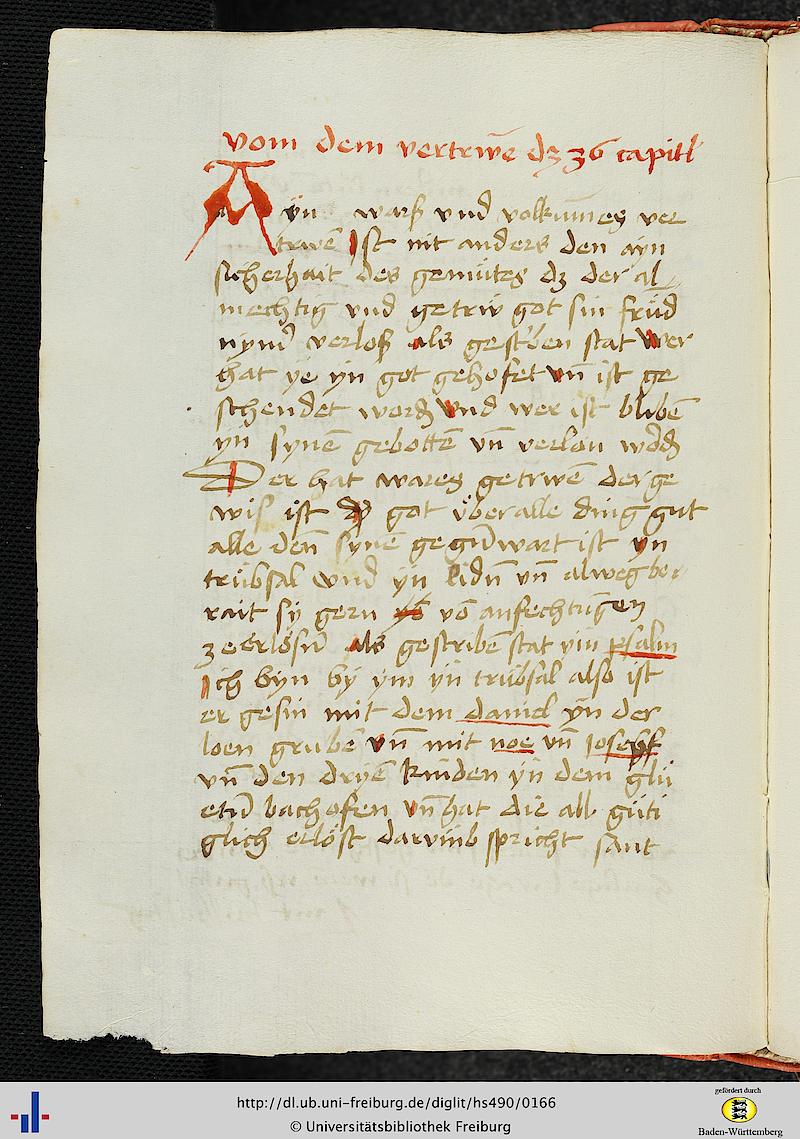 vom dem vertrwē dz 36 capitl
Ayn warß vnd volkum̄es ver
trwē Ist nit anders den ayn
sicherhait des gemütes dz der al
mechtig vnd getrw got sin frúd
nym̄ verloß als gest'ben stat Wer
hat ye yn got gehofet vn̄ ist ge
schendet word Vnd wer ist blibē
yn synē gebottē vn̄ verlon word
Der hat wares getrwē der ge
wis ist dz got überalle ding gut
alle den̄ synē gegūwart ist yn
trübsal vnd yn lidn̄ vn̄ alweg be
rait sy gern vō anfechtūgen
ze erlösn̄ als gestribē stat yin psalm
Ich byn by ym yn trübsal also ist
er gesin mit dem daniel yn der
loen grubē vn̄ mit noe vn̄ Joseph
vn̄ den dryē kinden yn dem glü
etn̄ bachofen vn̄ hat die all güti
glich erlöst darvmb spricht sant
http://dl.ub.uni-freiburg.de/diglit/hs490/0166
© Universitätsbibliothek Freiburg
gefördert durch
Baden-Württemberg